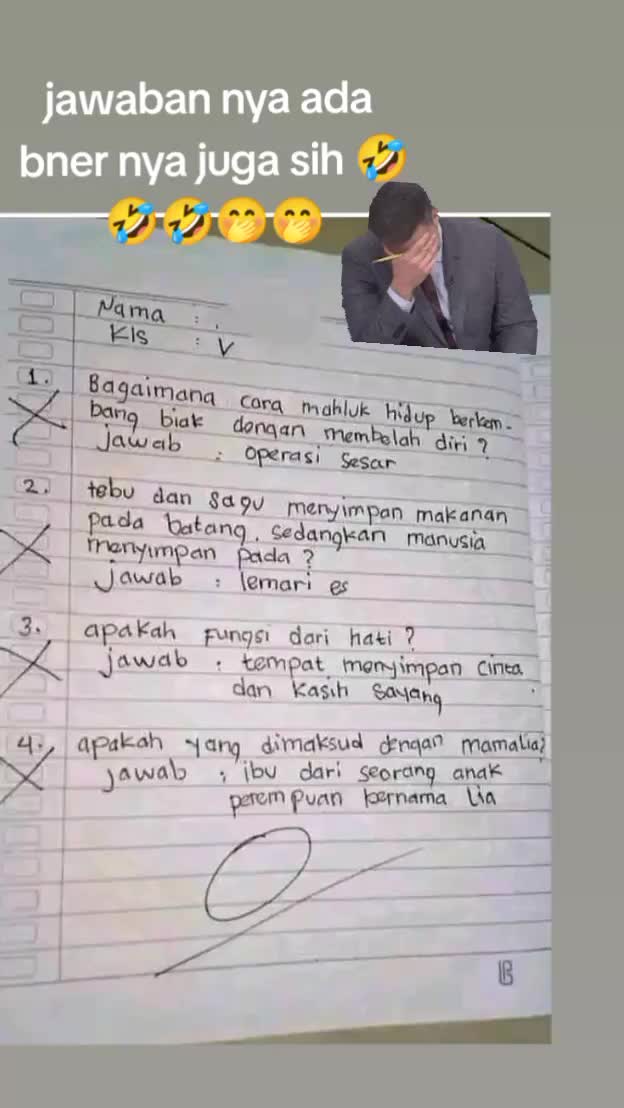 jawaban nya ada
bner nya juga sih 🤣
🤣🤣🤭🤭
Nama : .
Kls : V
1. Bagaimana cara mahluk hidup berkem-
bang biak dengan membelah diri?
jawab : operasi sesar
2. tebu dan sagu menyimpan makanan
pada batang, sedangkan manusia
menyimpan pada?
jawab : lemari es
3. apakah fungsi dari hati?
jawab : tempat menyimpan cinta
dan kasih sayang
4. apakah yang dimaksud dengan mamalia?
jawab : ibu dari seorang anak
perempuan bernama Lia
0
B